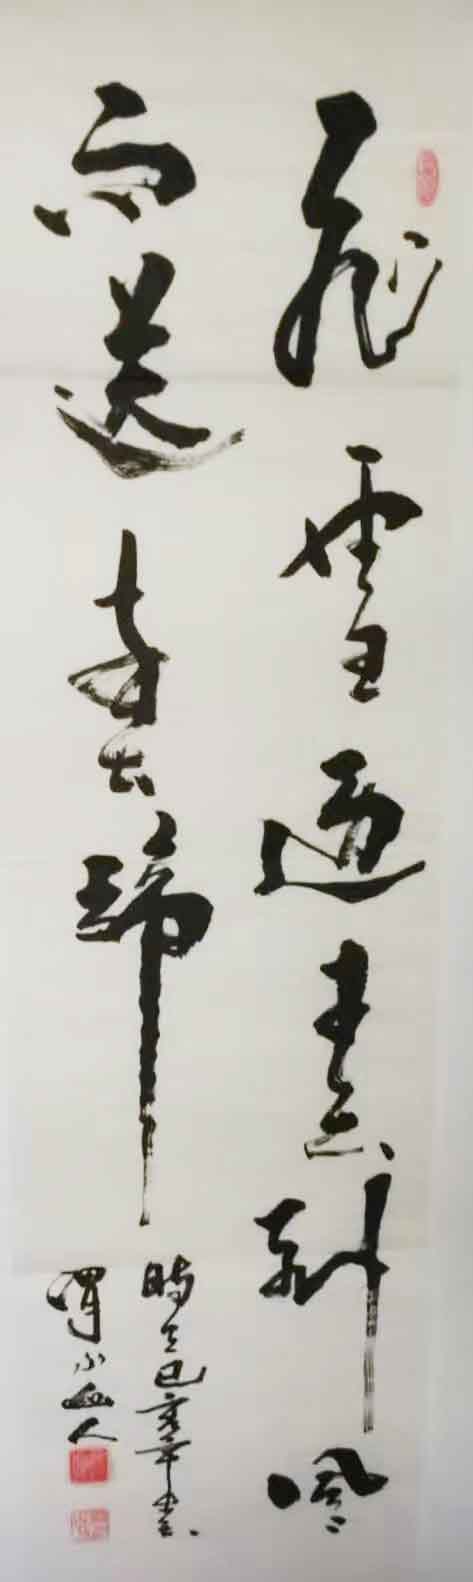 飛雪迎春到風
雨送春歸
時在己亥年書
渭水